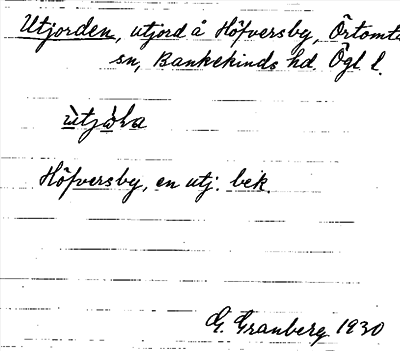 Utjorden, utjord å Höfversby, Örtomta
sn, Bankekinds hd. Ögl l.
Höfversby, en utj. bek.
G. Granberg 1930